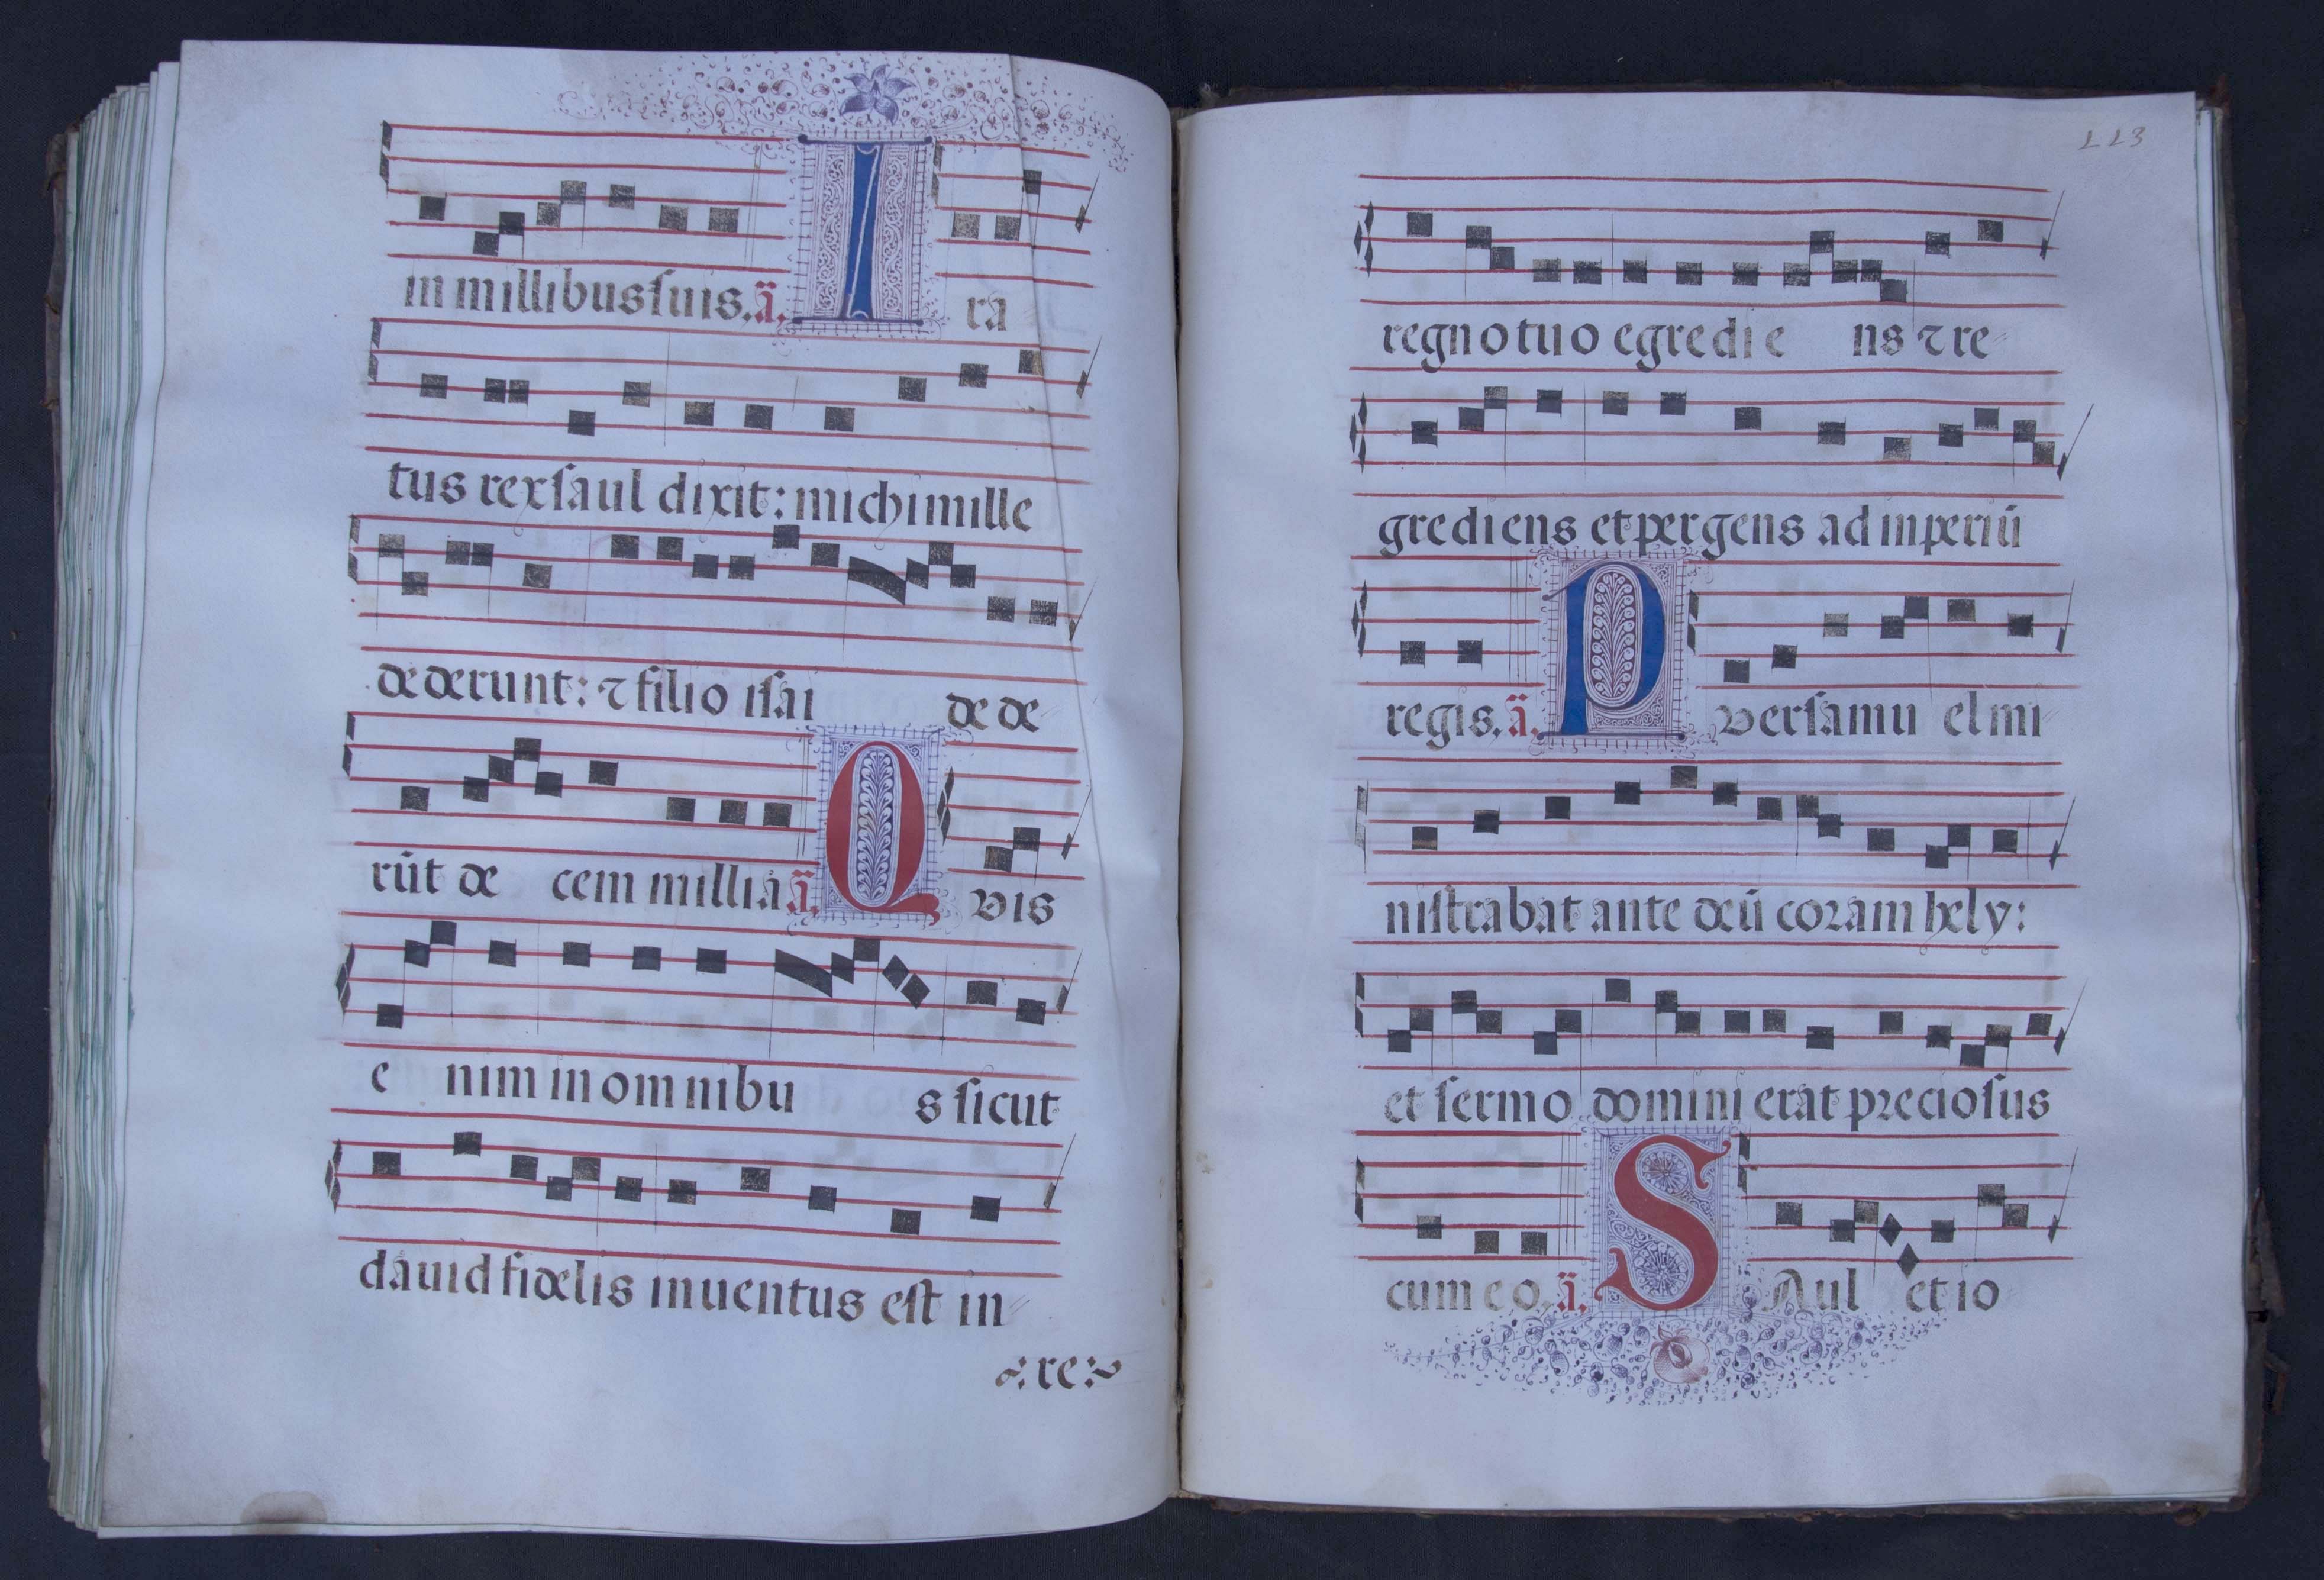 in millibus ſuis. ã. I ra
tus rex ſaul dixit: michi mille
dederunt: ⁊ filio iſai de de
rūt de cem millia ã. Q vis
e nim in omnibu s ſicut
dauid fidelis inuentus eſt in
re
113
regno tuo egredi e ns ⁊ re
grediens et pergens ad inperiū
regis. ã. P ver ſamu el mi
niſtrabat ante deū coram hely:
et ſermo domini erat precioſus
cum eo. ã. S Aul et io